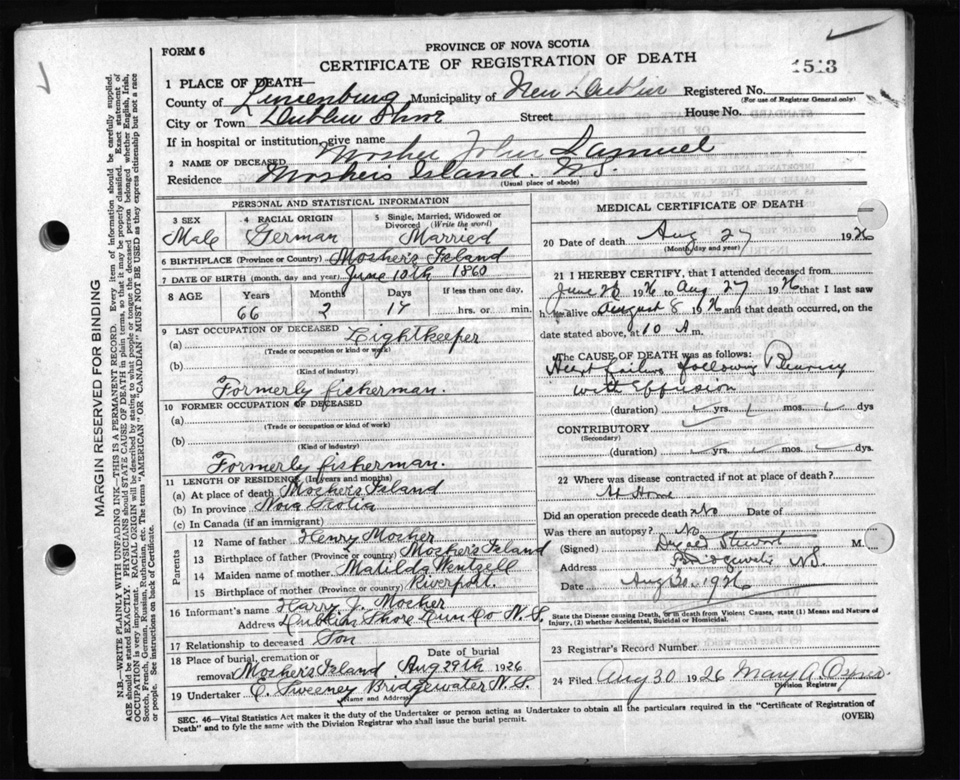 FORM 6
PROVINCE OF NOVA SCOTIA
CERTIFICATE OF REGISTRATION OF DEATH
1513
1 PLACE OF DEATH—
County of Lunenburg Municipality of New Dublin Registered No.
(For use of Registrar General only)
City or Town Dublin Shore Street House No.
If in hospital or institution, give name
2 NAME OF DECEASED Mosher John Samuel
Residence Moshers Island. N.S.
(Usual place of abode)
PERSONAL AND STATISTICAL INFORMATION
3 SEX Male
4 RACIAL ORIGIN German
5 Single, Married, Widowed or Divorced (Write the word) Married
6 BIRTHPLACE (Province or Country) Mosher's Island
7 DATE OF BIRTH (month, day and year) June 10th 1860
8 AGE Years Months Days If less than one day,
66 2 17 hrs. or min.
9 LAST OCCUPATION OF DECEASED
(a) Lightkeeper
(Trade or occupation or kind of work)
(b)
(Kind of industry)
Formerly fisherman.
10 FORMER OCCUPATION OF DECEASED
(a)
(Trade or occupation or kind of work)
(b)
(Kind of industry)
Formerly fisherman.
11 LENGTH OF RESIDENCE (In years and months)
(a) At place of death Mosher's Island
(b) In province Nova Scotia
(c) In Canada (if an immigrant)
Parents
12 Name of father Henry Mosher
13 Birthplace of father (Province or country) Mosher's Island
14 Maiden name of mother Matilda Wentzell
15 Birthplace of mother (Province or country) Riverport.
16 Informant's name Harry J. Mosher
Address Dublin Shore Lun Co N.S.
17 Relationship to deceased Son
18 Place of burial, cremation or removal Mosher's Island Date of burial Aug 29th 1926
19 Undertaker E. Sweeney Bridgewater N.S.
(Name and Address)
MEDICAL CERTIFICATE OF DEATH
20 Date of death Aug 27 1926
(Month, day and year)
21 I HEREBY CERTIFY, that I attended deceased from
June 1926 to Aug 27 1926 that I last saw
h alive on August 8 1926 and that death occurred, on the
date stated above, at 10 A m.
The CAUSE OF DEATH was as follows:
Heart failure following Pleurisy
with Effusion
(duration) yrs. mos. dys
CONTRIBUTORY
(Secondary)
(duration) yrs. mos. dys.
22 Where was disease contracted if not at place of death?
At Home
Did an operation precede death? No Date of
Was there an autopsy? No
(Signed) Stewart M.
Address Bridgewater N.S.
Date Aug 30, 1926
State the Disease causing Death, or in death from Violent Causes, state (1) Means and Nature of
Injury, (2) whether Accidental, Suicidal or Homicidal.
23 Registrar's Record Number
24 Filed Aug 30 1926 Mary A.
Division Registrar
SEC. 46—Vital Statistics Act makes it the duty of the Undertaker or person acting as Undertaker to obtain all the particulars required in the "Certificate of Registration of
Death" and to fyle the same with the Division Registrar who shall issue the burial permit.
(OVER)
MARGIN RESERVED FOR BINDING
N.B.—WRITE PLAINLY WITH UNFADING INK—THIS IS A PERMANENT RECORD. Every item of information should be carefully supplied.
AGE should be stated EXACTLY. PHYSICIANS should STATE CAUSE OF DEATH in plain terms, so that it may be properly classified. Exact statement of
OCCUPATION is very important. RACIAL ORIGIN will be described by stating to what people or tongue the deceased person belonged whether English, Irish,
Scotch, French, German, Russian, Ruthenian, etc. The terms "AMERICAN" OR "CANADIAN" MUST NOT BE USED as they express citizenship but not a race
or people. See instructions on back of Certificate.